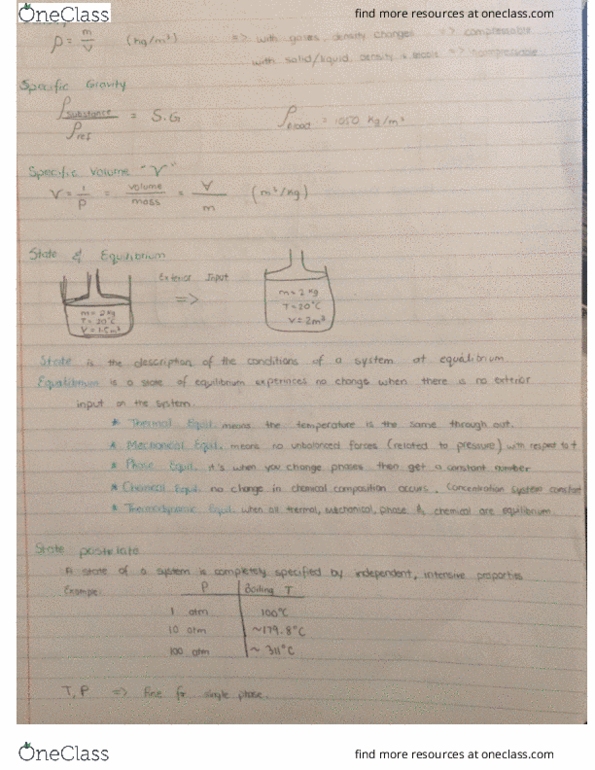 OneClass find more resources at oneclass.com
ρ = m/V (kg/m³) => with gases, density changes => compressable
with solid/liquid, density =
Specific Gravity
ρsubstance / ρref = S.G ρblood = 1050 kg/m³
Specific Volume "V"
V = 1/ρ = volume/mass = V/m (m³/kg)
State & Equilibrium
Exterior Input
=>
m = 2 kg
T = 20°C
V = 1.5m³
m = 2 kg
T = 20°C
V = 2m³
State is the description of the conditions of a system at equilibrium.
Equalibrium is a state of equilibrium experinces no change when there is no exterior
input on the system.
* Thermal Equil. means the temperature is the same through out.
* Mechanical Equil. means no unbalanced forces (related to pressure) with respect to t
* Phase Equil. it's when you change phases then get a constant number
* Chemical Equil. no change in chemical composition occurs. Concentration system constant
* Thermodynamic Equil. when all thermal, mechanical, phase & chemical are equilibrium.
State postelate
A state of a system is completely specified by independent, intensive properties
Exampe: P Boiling T
1 atm 100°C
10 atm ~179.8°C
100 atm ~ 311°C
T, P => fine for single phase.
OneClass find more resources at oneclass.com